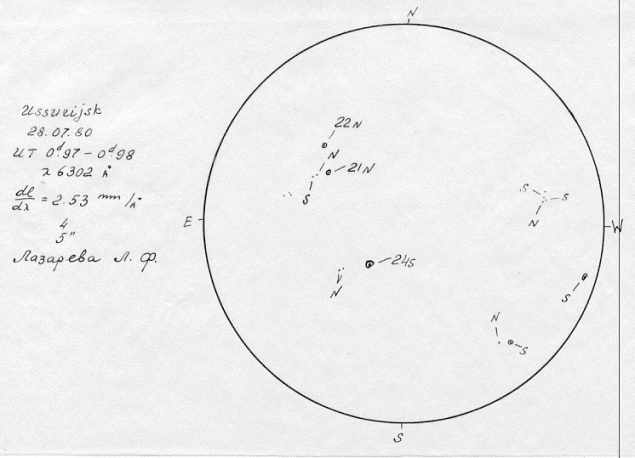 Ussurijsk
28.07.80
UT 0ᵈ.97 - 0ᵈ.98
λ 6302 Å
dl/dλ = 2.53 mm/Å
4
5"
Лазарева Л. Ф.
N
22N
N
21N
S
S
S
N
E
W
24S
N
S
N
S
S